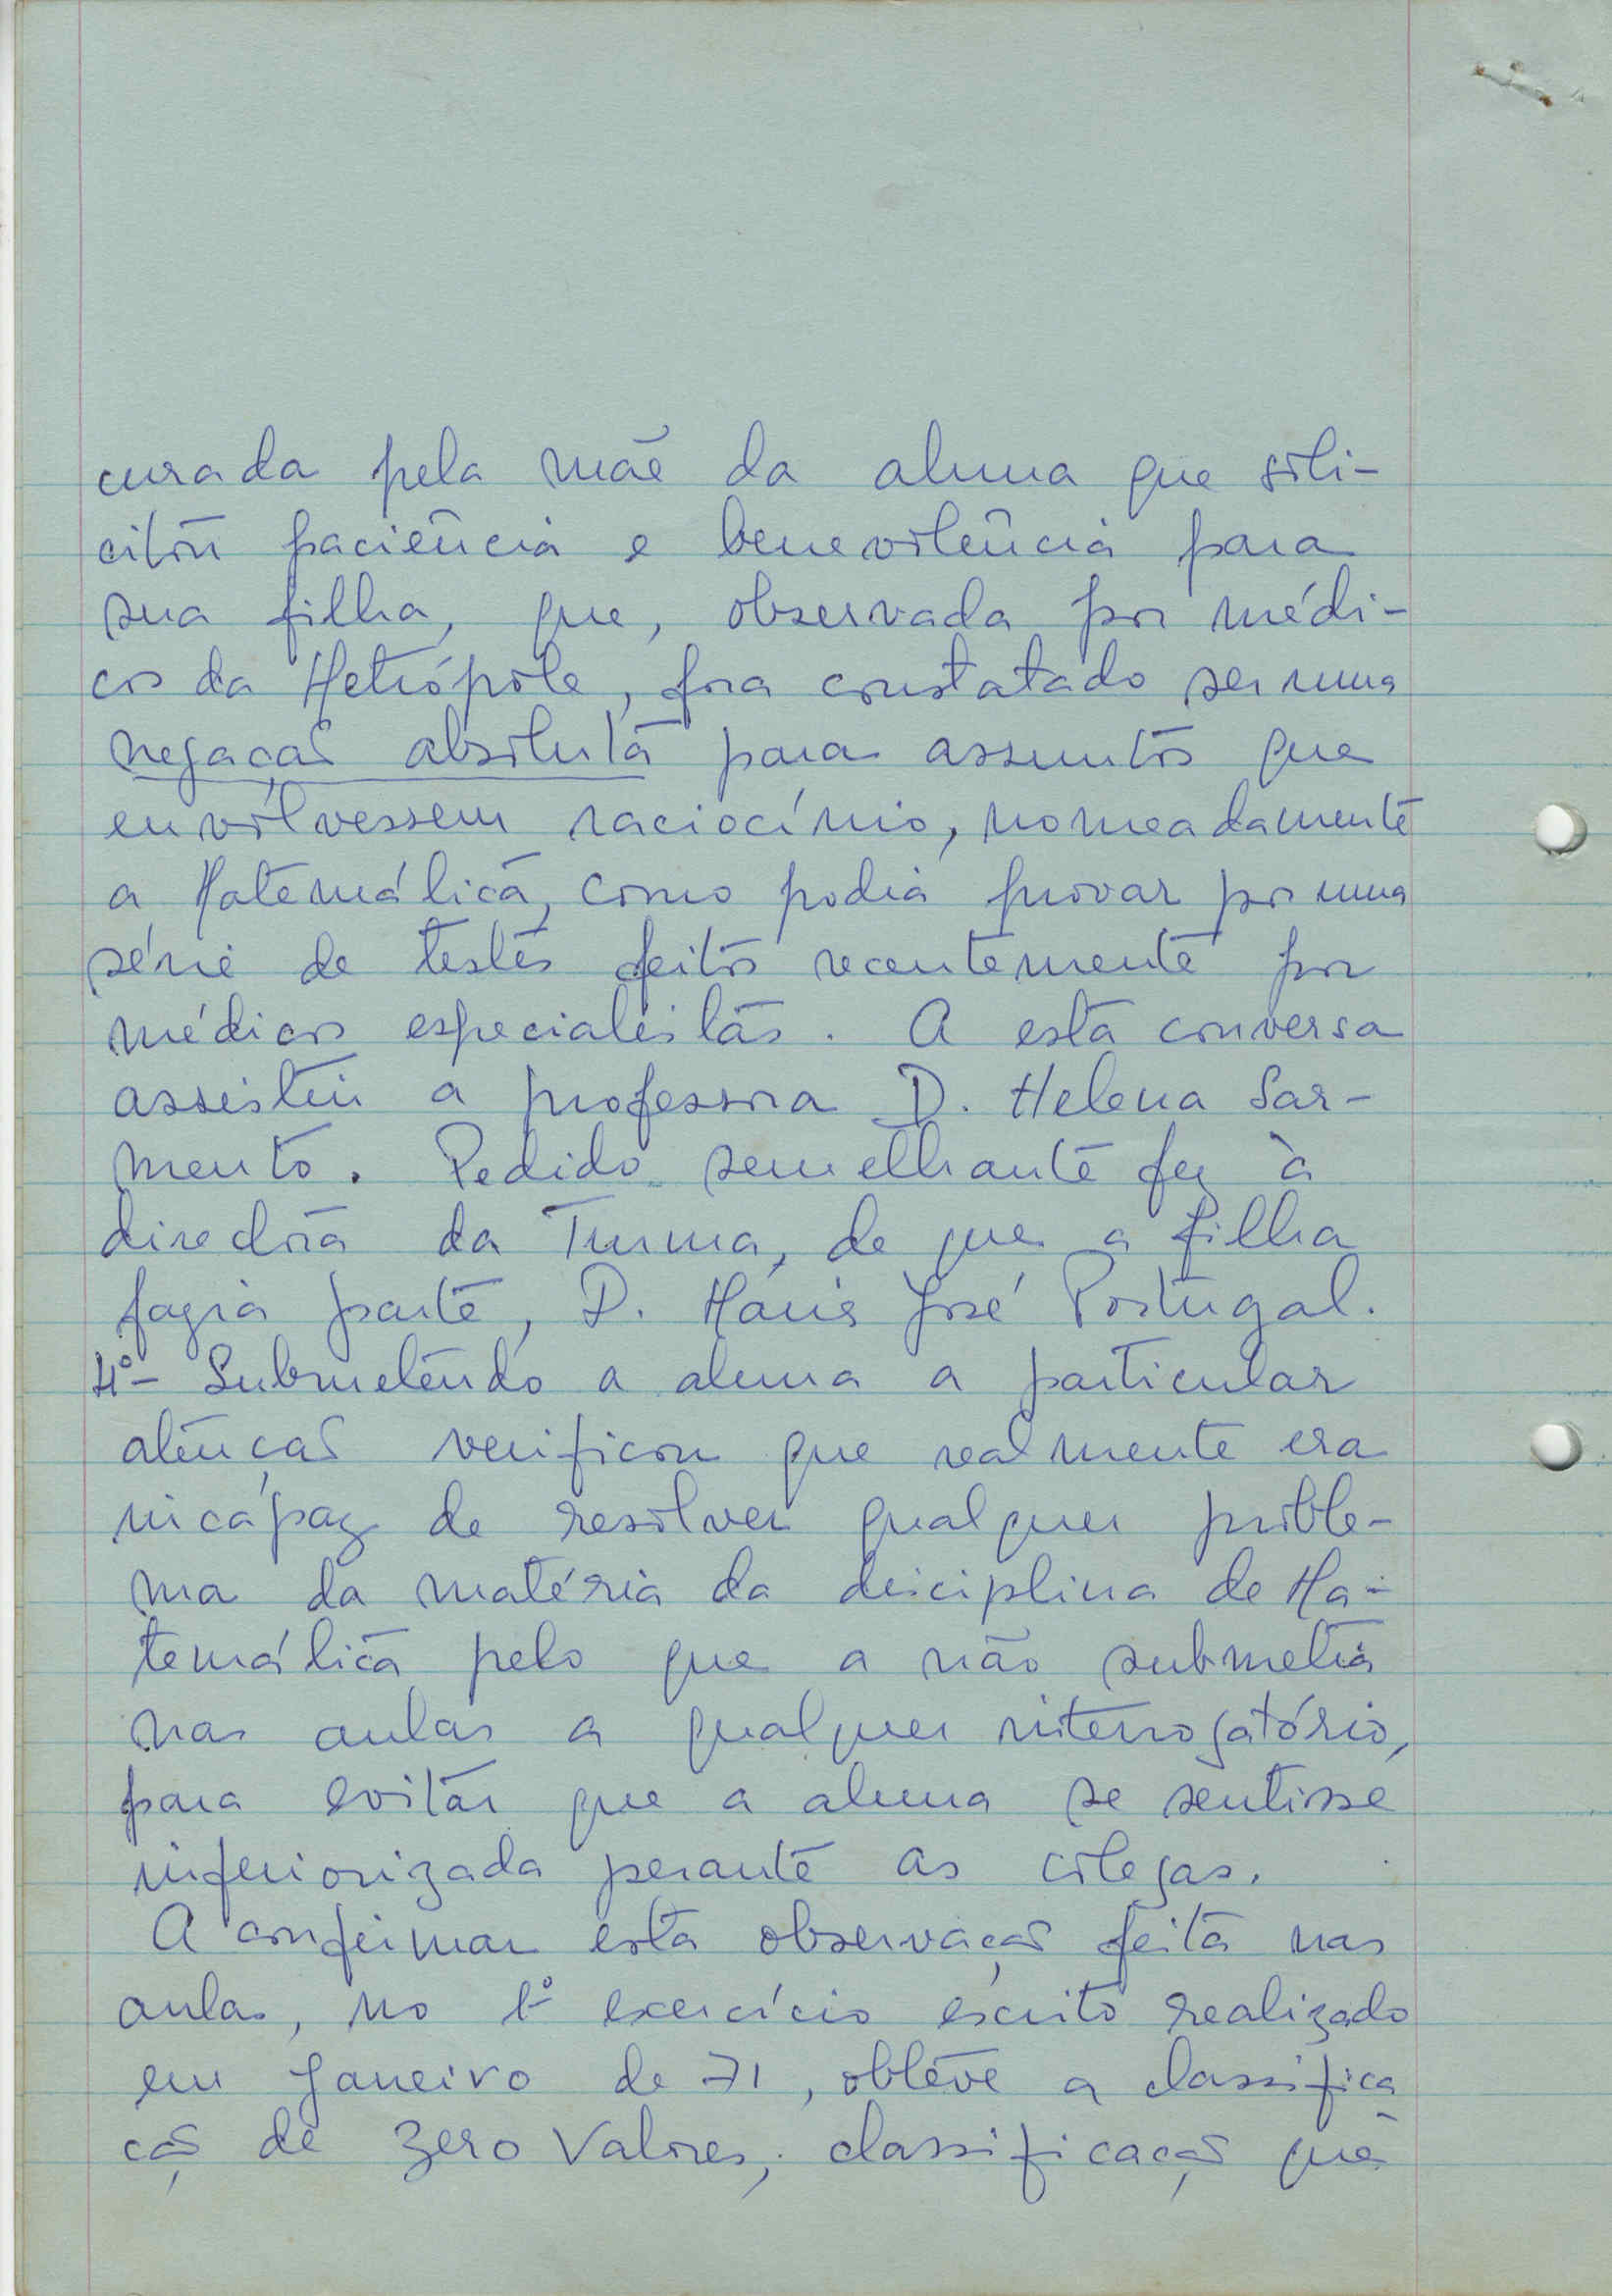 curada pela mãe da aluna que soli-
citou paciência e benevolência para
sua filha, que, observada por médi-
cos da Metrópole, fora constatado ser uma
negação absoluta para assuntos que
envolvessem raciocínio, nomeadamente
a Matemática, como podia provar por uma
série de testes feitos recentemente por
médicos especialistas. A esta conversa
assistiu a professora D. Helena Sar-
mento. Pedido semelhante fez à
directora da Turma, de que a filha
fazia parte, D. Maria José Portugal.
4º- Submetendo a aluna a particular
atenção verificou que realmente era
incapaz de resolver qualquer proble-
ma da matéria da disciplina de Ma-
temática pelo que a não submetia
nas aulas a qualquer interrogatório,
para evitar que a aluna se sentisse
inferiorizada perante as colegas.
A confirmar esta observação feita nas
aulas, no 1º exercício escrito realizado
em Janeiro de 71, obteve a classifica-
ção de zero Valores, classificação que